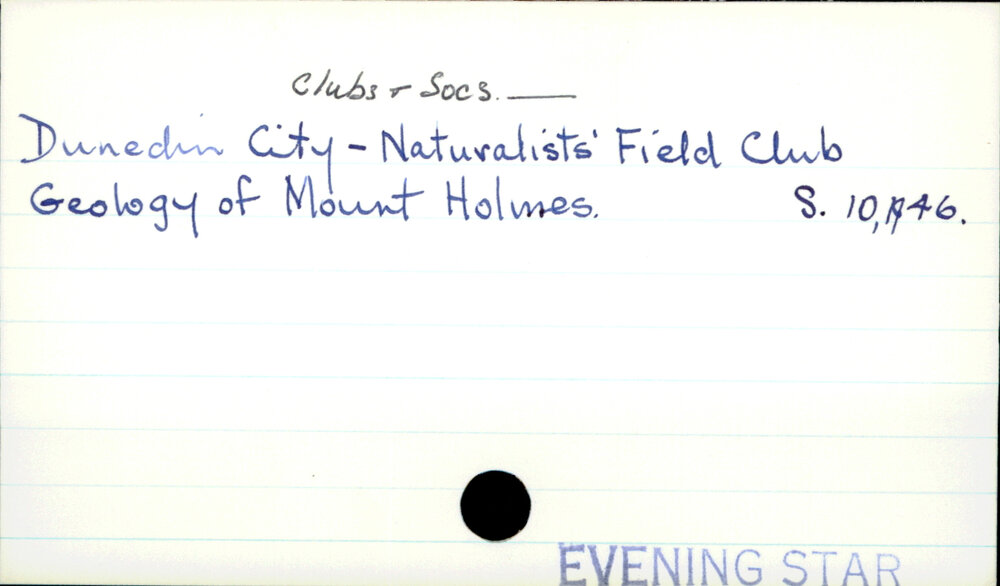 Clubs & Socs. ——
Dunedin City - Naturalists' Field Club
Geology of Mount Holmes. S. 10, 46.
EVENING STAR